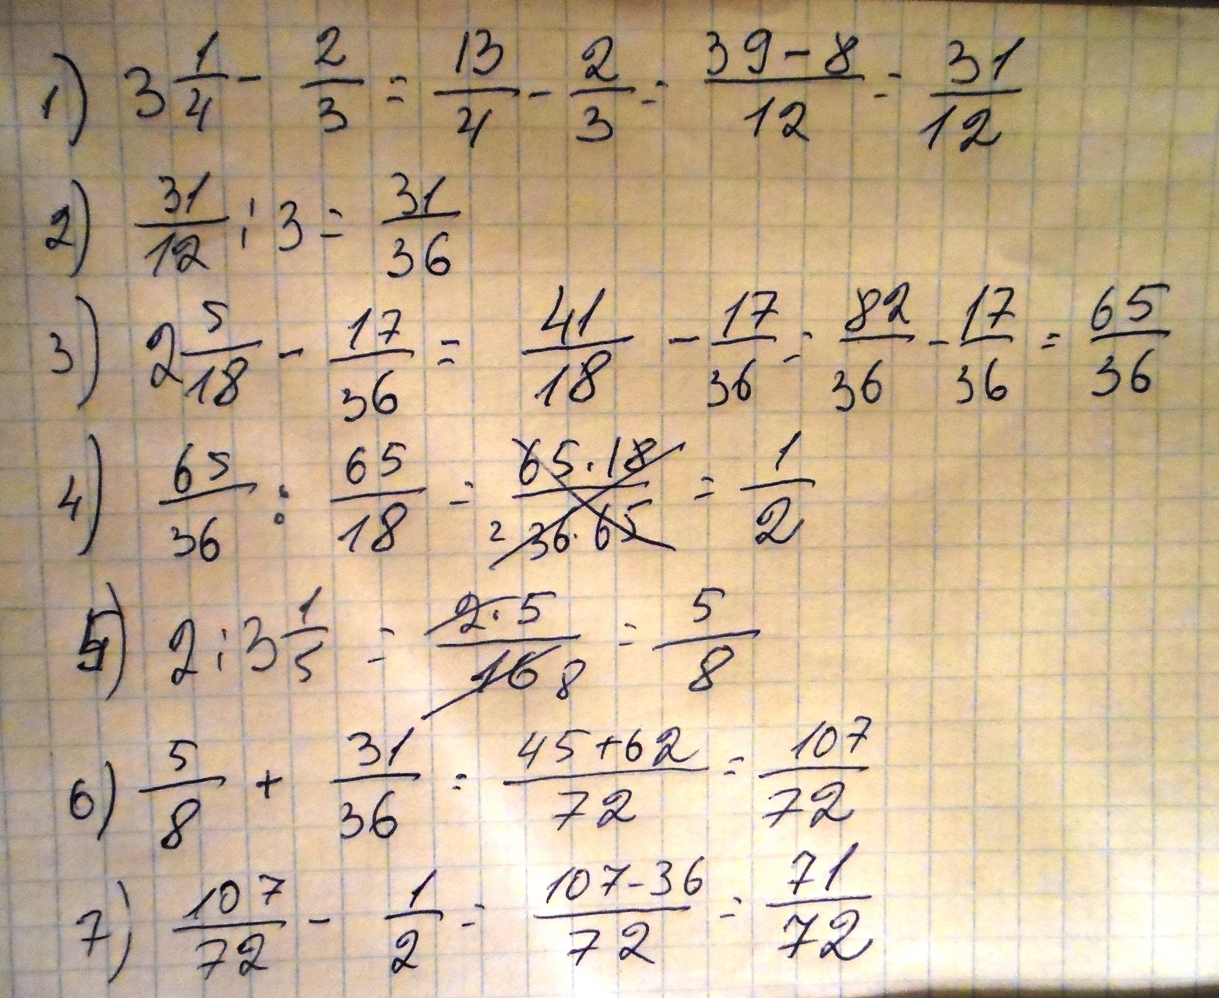 1) 3 1/4 - 2/3 = 13/4 - 2/3 = (39-8)/12 = 31/12
2) 31/12 : 3 = 31/36
3) 2 5/18 - 17/36 = 41/18 - 17/36 = 82/36 - 17/36 = 65/36
4) 65/36 : 65/18 = (65·18)/(36·65) 2 = 1/2
5) 2 : 3 1/5 = (2·5)/16 8 = 5/8
6) 5/8 + 31/36 = (45+62)/72 = 107/72
7) 107/72 - 1/2 = (107-36)/72 = 71/72